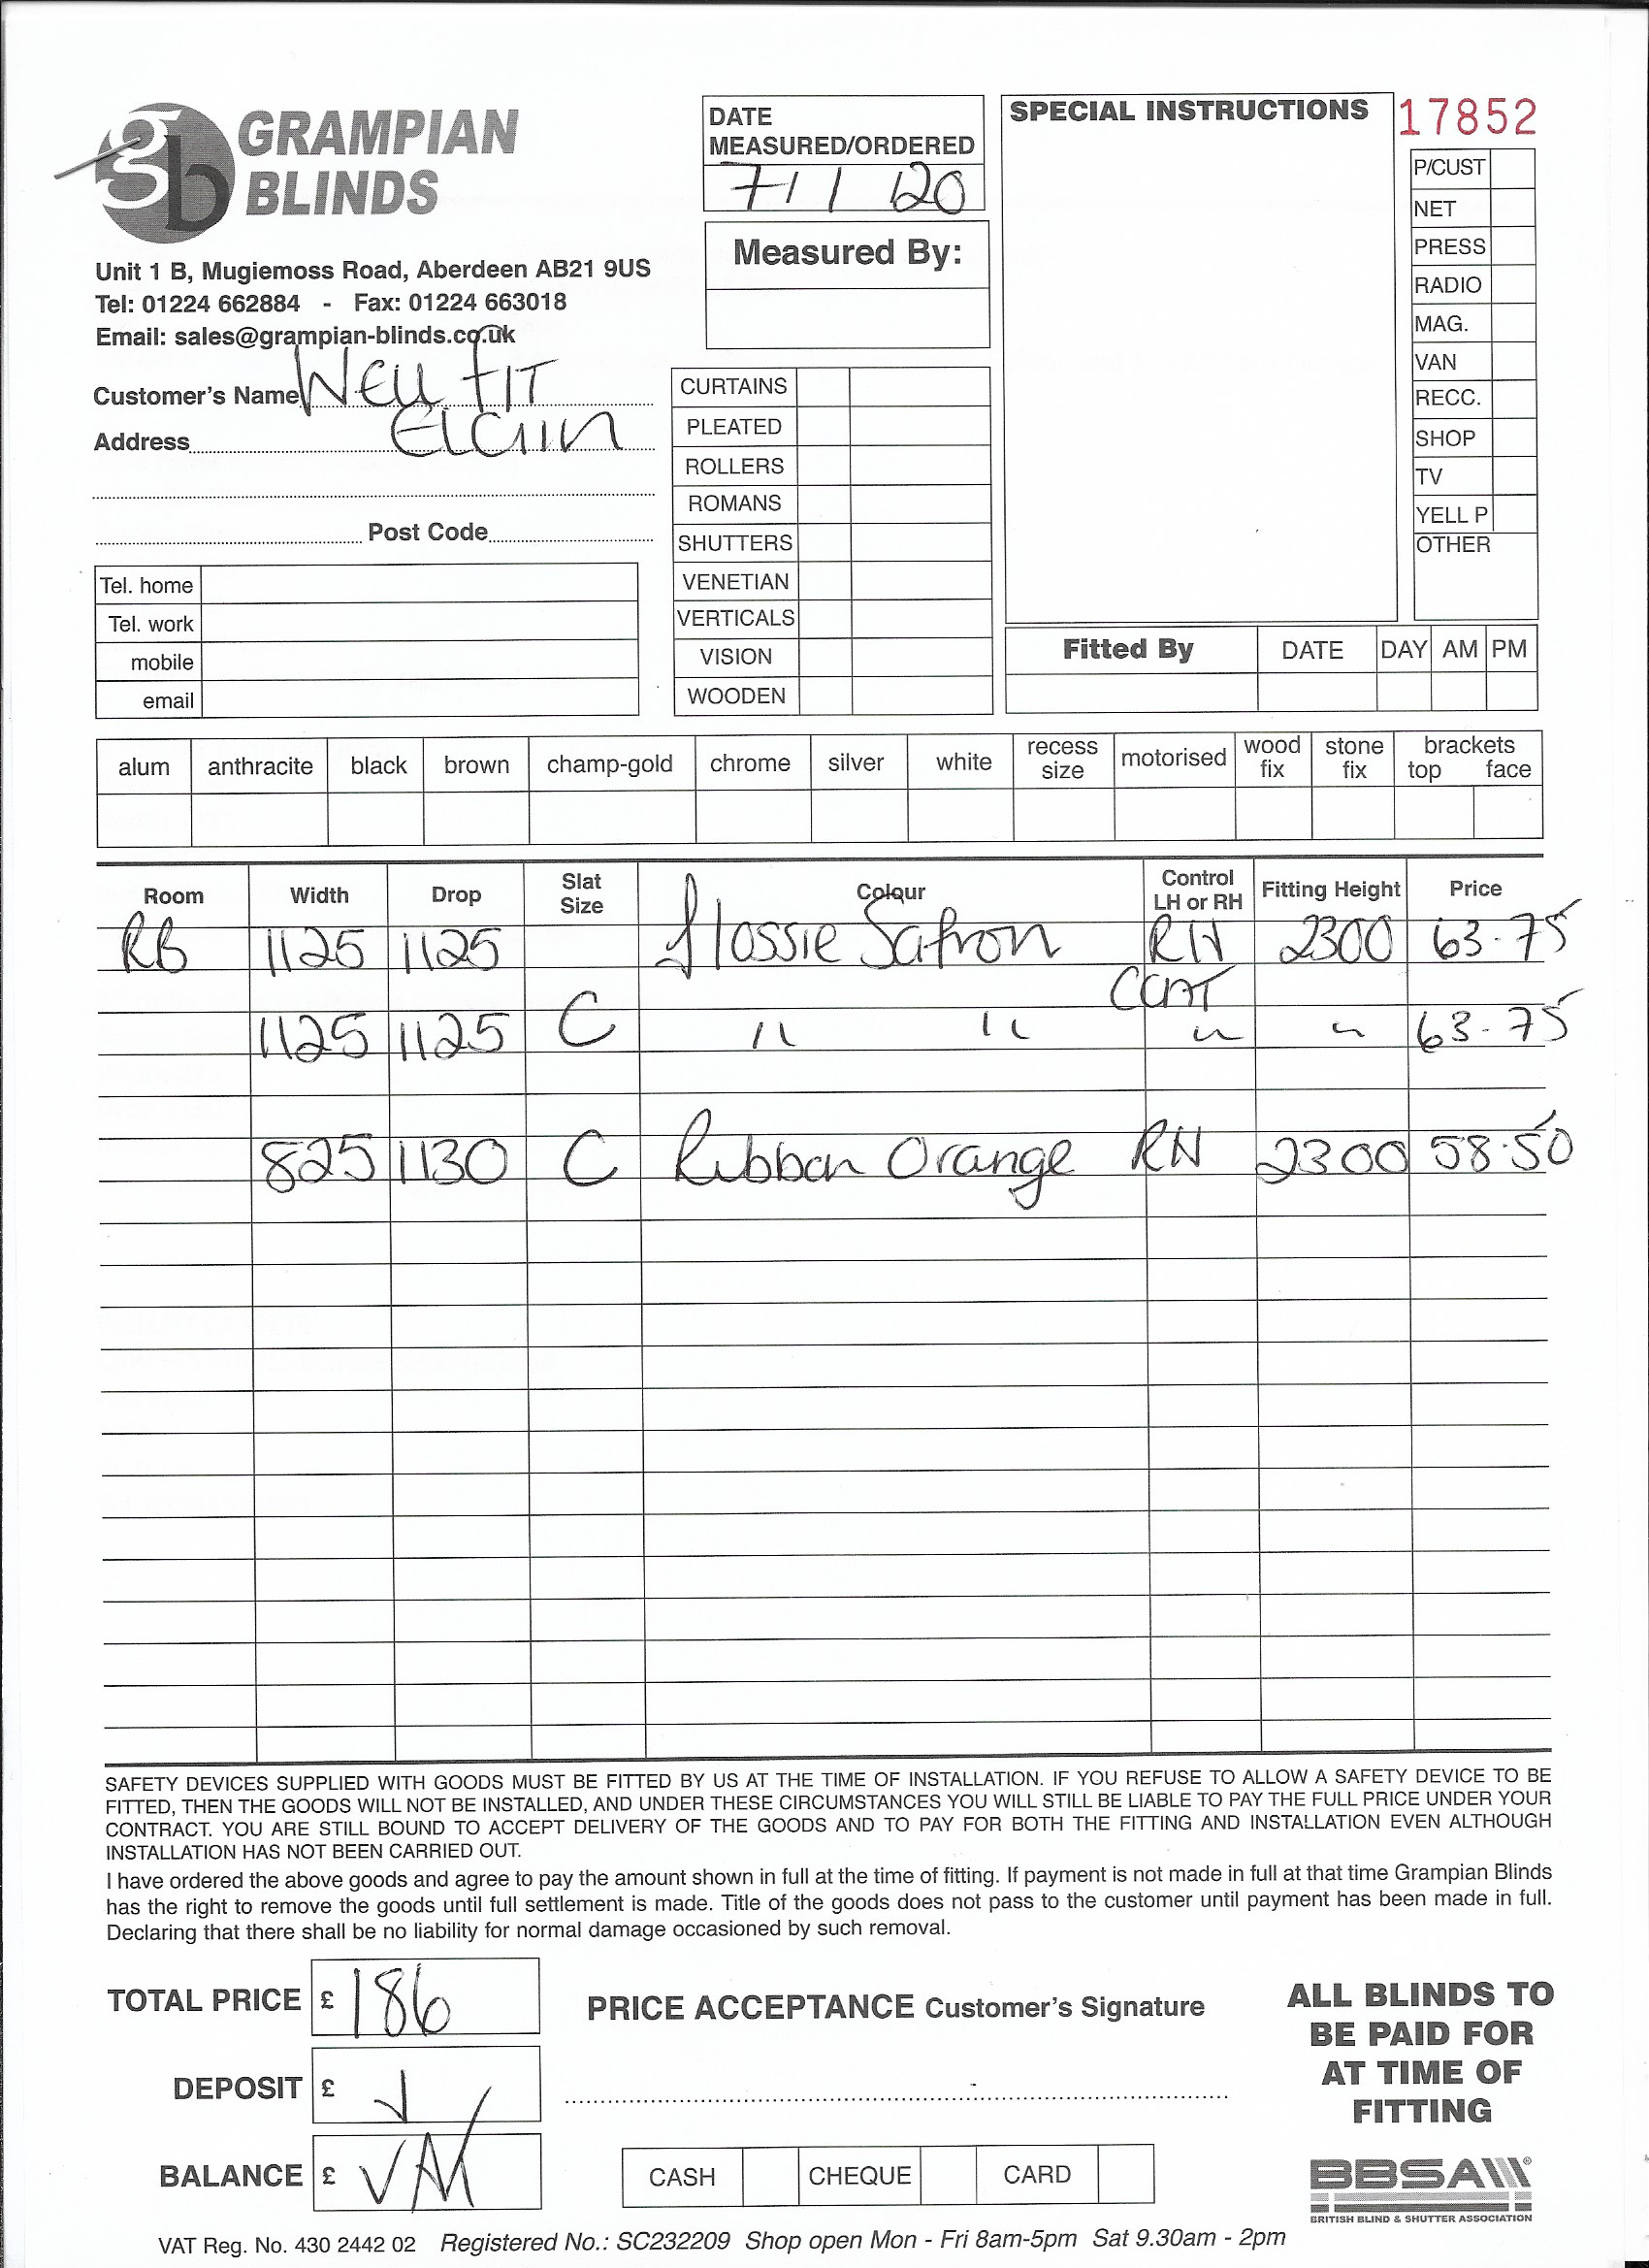 gb GRAMPIAN
BLINDS
Unit 1 B, Mugiemoss Road, Aberdeen AB21 9US
Tel: 01224 662884 - Fax: 01224 663018
Email: sales@grampian-blinds.co.uk
Customer's Name Well Fit
Address Elgin
Post Code
Tel. home
Tel. work
mobile
email
DATE
MEASURED/ORDERED
7/1/20
Measured By:
CURTAINS
PLEATED
ROLLERS
ROMANS
SHUTTERS
VENETIAN
VERTICALS
VISION
WOODEN
SPECIAL INSTRUCTIONS
17852
P/CUST
NET
PRESS
RADIO
MAG.
VAN
RECC.
SHOP
TV
YELL P
OTHER
Fitted By DATE DAY AM PM
alum anthracite black brown champ-gold chrome silver white recess size motorised wood fix stone fix brackets top face
Room Width Drop Slat Size Colour Control LH or RH Fitting Height Price
RB 1125 1125 Flossie Safron RH 2300 63-75
1125 1125 C " " " " 63-75
825 1130 C Ribbon Orange RH 2300 58.50
SAFETY DEVICES SUPPLIED WITH GOODS MUST BE FITTED BY US AT THE TIME OF INSTALLATION. IF YOU REFUSE TO ALLOW A SAFETY DEVICE TO BE
FITTED, THEN THE GOODS WILL NOT BE INSTALLED, AND UNDER THESE CIRCUMSTANCES YOU WILL STILL BE LIABLE TO PAY THE FULL PRICE UNDER YOUR
CONTRACT. YOU ARE STILL BOUND TO ACCEPT DELIVERY OF THE GOODS AND TO PAY FOR BOTH THE FITTING AND INSTALLATION EVEN ALTHOUGH
INSTALLATION HAS NOT BEEN CARRIED OUT.
I have ordered the above goods and agree to pay the amount shown in full at the time of fitting. If payment is not made in full at that time Grampian Blinds
has the right to remove the goods until full settlement is made. Title of the goods does not pass to the customer until payment has been made in full.
Declaring that there shall be no liability for normal damage occasioned by such removal.
TOTAL PRICE £ 186
DEPOSIT £
BALANCE £ VAT
PRICE ACCEPTANCE Customer's Signature
CASH CHEQUE CARD
ALL BLINDS TO
BE PAID FOR
AT TIME OF
FITTING
BBSA
BRITISH BLIND & SHUTTER ASSOCIATION
VAT Reg. No. 430 2442 02 Registered No.: SC232209 Shop open Mon - Fri 8am-5pm Sat 9.30am - 2pm